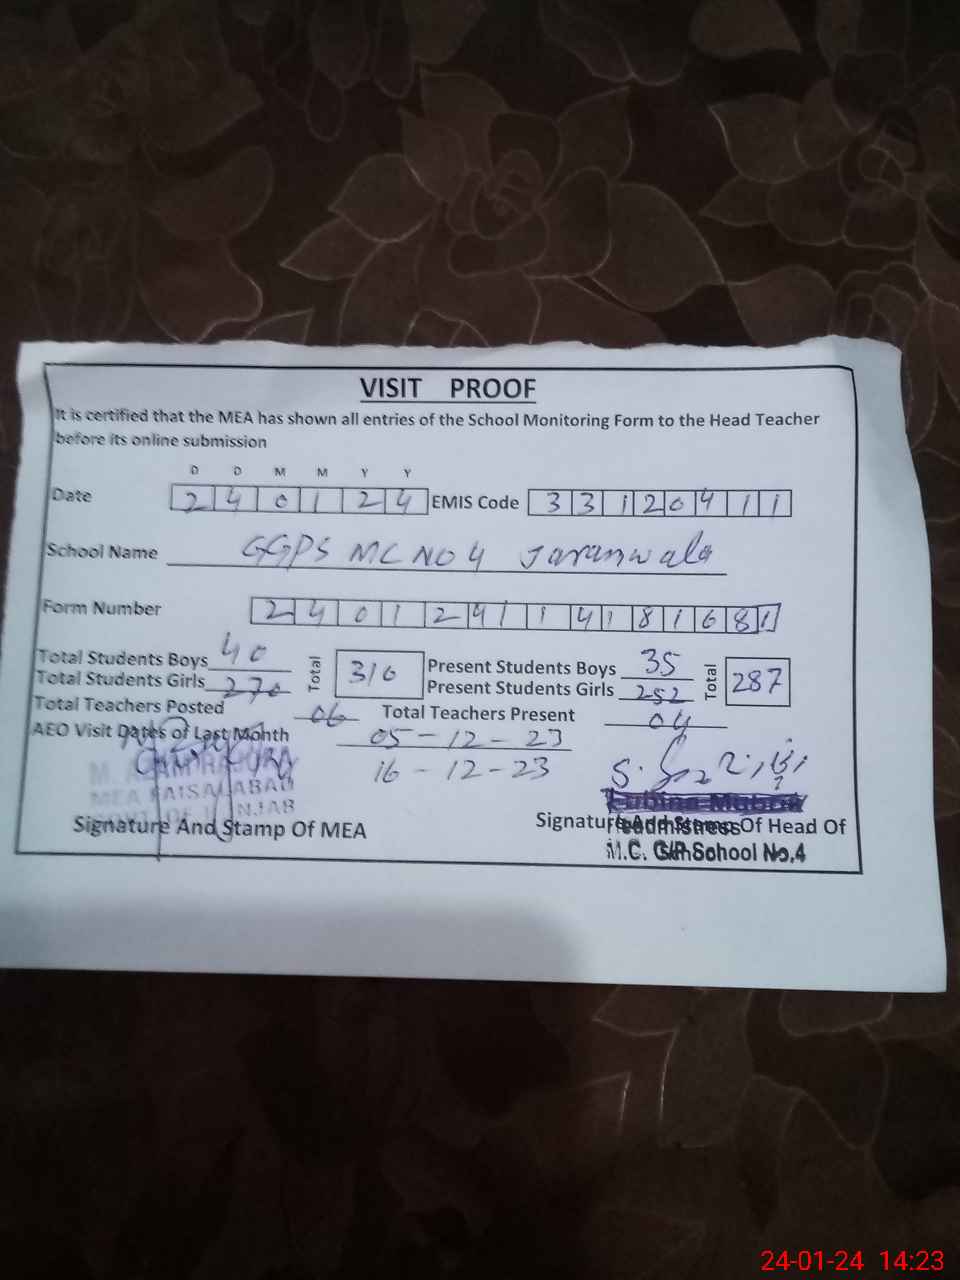 VISIT PROOF
It is certified that the MEA has shown all entries of the School Monitoring Form to the Head Teacher
before its online submission
D D M M Y Y
Date 2 4 0 1 2 4 EMIS Code 3 3 1 2 0 4 1 1
School Name GGPS MC NO 4 Jaranwala
Form Number 2 4 0 1 2 4 1 1 4 1 8 1 6 8 1
Total Students Boys 40 Total 316 Present Students Boys 35 Total 287
Total Students Girls 276 Present Students Girls 252
Total Teachers Posted 06 Total Teachers Present 04
AEO Visit Dates of Last Month 05-12-23
16-12-23
MEA FAISALABAD
Signature And Stamp Of MEA
Signature And Stamp Of Head Of
Headmistress
M.C. G/P School No.4
24-01-24 14:23